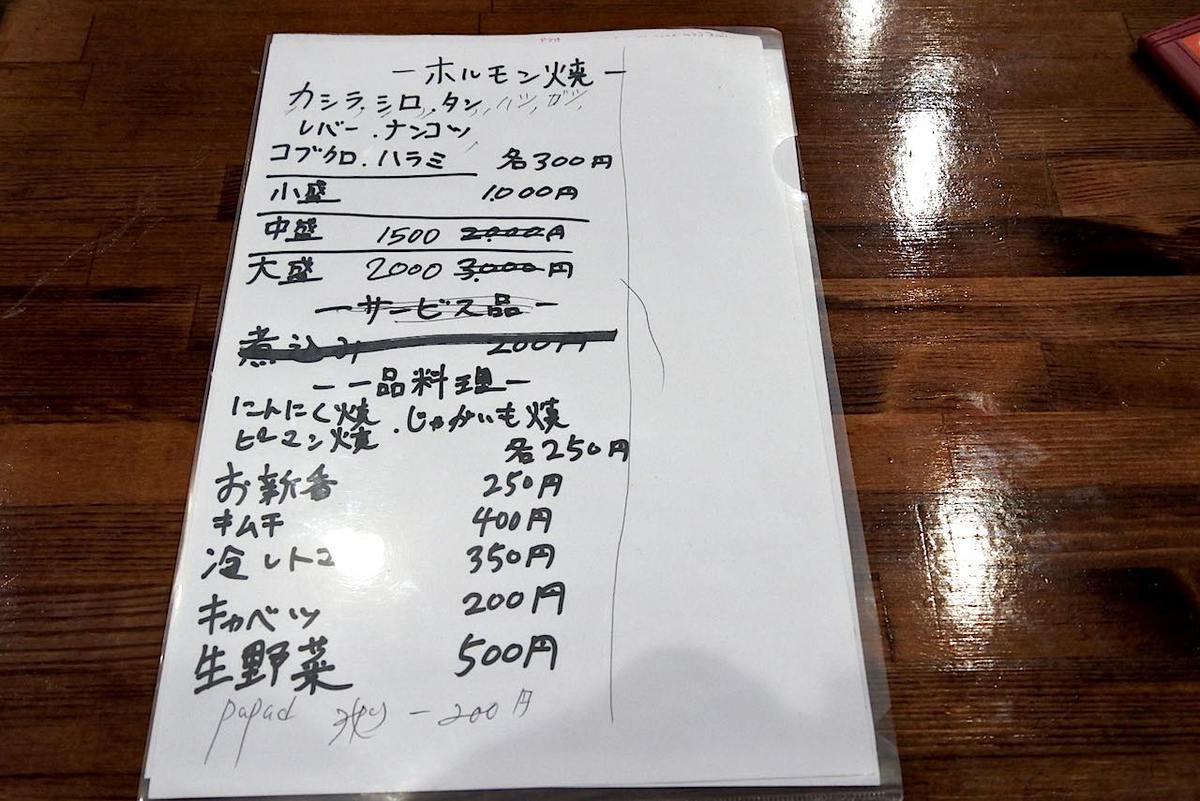 ーホルモン焼ー
カシラ.シロ.タン.ハツ,ガツ,
レバー.ナンコツ
コブクロ.ハラミ 各300円
小盛 1.000円
中盛 1500 2.000円
大盛 2000 3.000円
ーサービス品ー
煮込み 200円
ー一品料理ー
にんにく焼.じゃがいも焼
ピーマン焼 各250円
お新香 250円
キムチ 400円
冷しトマ 350円
キャベツ 200円
生野菜 500円
papad ー200円